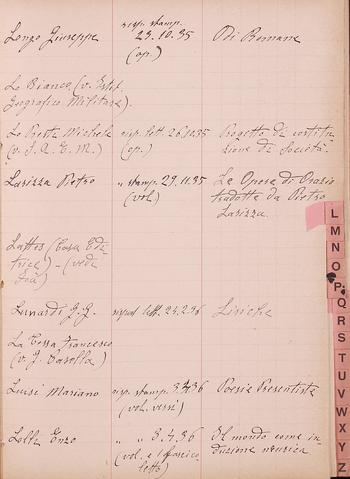 Longo Giuseppe
risp. stamp.
23.10.35
(op.)
Odi Romane
Lo Bianco (v. Istit.
Geografico Militare).
Lo Presti Michele
(v. S. A. E. M.)
risp. lett. 26.10.35
(op.)
Progetto di costitu-
zione di Società.
Larizza Pietro
" stamp. 29.11.35
(vol)
Le Opere di Orazio
tradotte da Pietro
Larizza.
Lattes (Casa Edi-
trice) - (vedi
Lunardi G. G.
lett. 22.2.36
Liriche
La Cossa Francesco
(v. G. Casella)
Luisi Mariano
risp. stamp. 3.4.36
(vol. versi)
Poesie Presentiste
Lolli Enzo
" " 8.4.36
(vol. e 1 fascico-
letto)
Il mondo come in-
duzione noerica.
L
M
N
O
P
Q
R
S
T
U
V
W
X
Y
Z